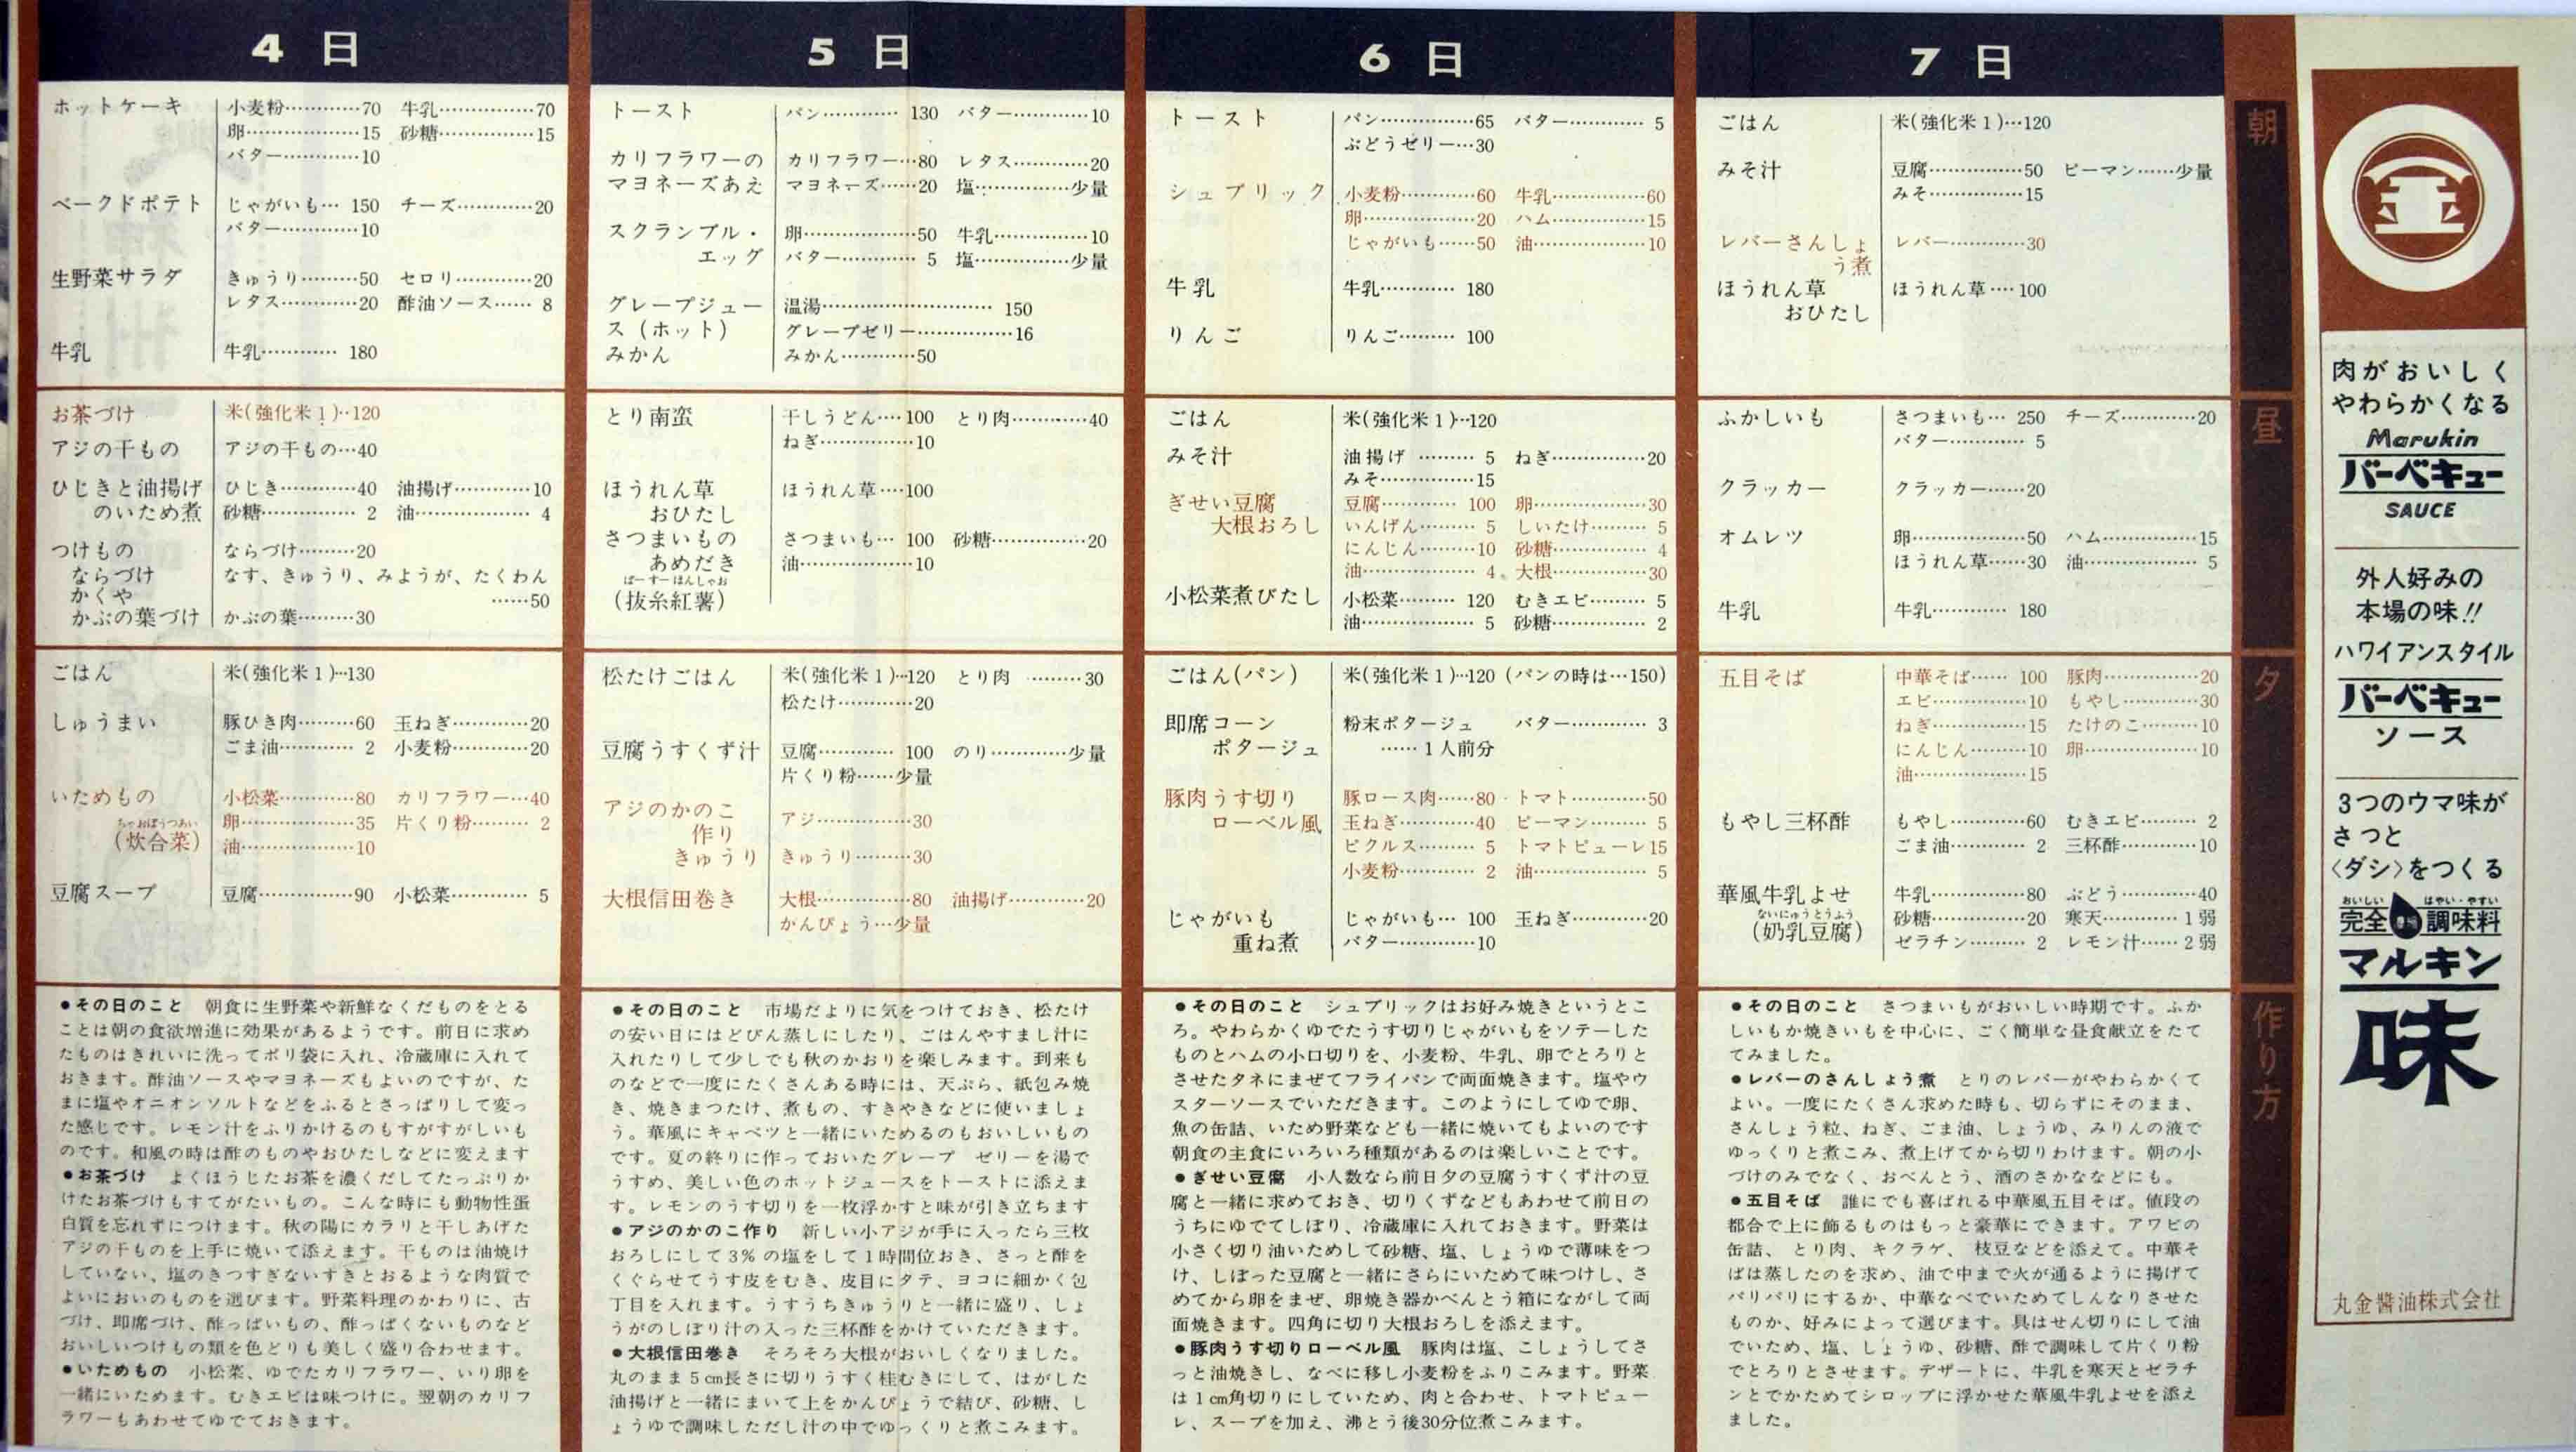 4 日
ホットケーキ 小麦粉…………70 牛乳……………70
卵………………15 砂糖……………15
バター…………10
ベークドポテト じゃがいも… 150 チーズ…………20
バター…………10
生野菜サラダ きゅうり………50 セロリ…………20
レタス…………20 酢油ソース…… 8
牛乳 牛乳………… 180
お茶づけ 米(強化米1)‥120
アジの干もの アジの干もの…40
ひじきと油揚げ ひじき…………40 油揚げ…………10
のいため煮 砂糖…………… 2 油……………… 4
つけもの ならづけ………20
ならづけ なす、きゅうり、みようが、たくわん
かくや ……50
かぶの葉づけ かぶの葉………30
ごはん 米(強化米1)…130
しゅうまい 豚ひき肉………60 玉ねぎ…………20
ごま油………… 2 小麦粉…………20
いためもの 小松菜…………80 カリフラワー…40
ちゃおぼうつあい
(炊合菜) 卵………………35 片くり粉……… 2
油………………10
豆腐スープ 豆腐……………90 小松菜………… 5
●その日のこと 朝食に生野菜や新鮮なくだものをとる
ことは朝の食欲増進に効果があるようです。前日に求め
たものはきれいに洗ってポリ袋に入れ、冷蔵庫に入れて
おきます。酢油ソースやマヨネーズもよいのですが、た
まに塩やオニオンソルトなどをふるとさっぱりして変っ
た感じです。レモン汁をふりかけるのもすがすがしいも
のです。和風の時は酢のものやおひたしなどに変えます
●お茶づけ よくほうじたお茶を濃くだしてたっぷりか
けたお茶づけもすてがたいもの。こんな時にも動物性蛋
白質を忘れずにつけます。秋の陽にカラリと干しあげた
アジの干ものを上手に焼いて添えます。干ものは油焼け
していない、塩のきつすぎないすきとおるような肉質で
よいにおいのものを選びます。野菜料理のかわりに、古
づけ、即席づけ、酢っぱいもの、酢っぱくないものなど
おいしいつけもの類を色どりも美しく盛り合わせます。
●いためもの 小松菜、ゆでたカリフラワー、いり卵を
一緒にいためます。むきエビは味つけに。翌朝のカリフ
ラワーもあわせてゆでておきます。
5 日
トースト パン………… 130 バター…………10
カリフラワーの カリフラワー…80 レタス…………20
マヨネーズあえ マヨネーズ……20 塩……………少量
スクランブル・ 卵………………50 牛乳……………10
エッグ バター………… 5 塩……………少量
グレープジュー 温湯……………………… 150
ス(ホット) グレープゼリー……………16
みかん みかん…………50
とり南蛮 干しうどん…‥100 とり肉…………40
ねぎ……………10
ほうれん草 ほうれん草…‥100
おひたし
さつまいもの さつまいも… 100 砂糖……………20
あめだき 油………………10
ばーすーほんしゃお
(抜糸紅薯)
松たけごはん 米(強化米1)…120 とり肉 ………30
松たけ…………20
豆腐うすくず汁 豆腐………… 100 のり…………少量
片くり粉……少量
アジのかのこ アジ……………30
作り
きゅうり きゅうり………30
大根信田巻き 大根……………80 油揚げ…………20
かんぴょう…少量
●その日のこと 市場だよりに気をつけておき、松たけ
の安い日にはどびん蒸しにしたり、ごはんやすまし汁に
入れたりして少しでも秋のかおりを楽しみます。到来も
のなどで一度にたくさんある時には、天ぷら、紙包み焼
き、焼きまつたけ、煮もの、すきやきなどに使いましょ
う。華風にキャベツと一緒にいためるのもおいしいもの
です。夏の終りに作っておいたグレープ ゼリーを湯で
うすめ、美しい色のホットジュースをトーストに添えま
す。レモンのうす切りを一枚浮かすと味が引き立ちます
●アジのかのこ作り 新しい小アジが手に入ったら三枚
おろしにして3%の塩をして1時間位おき、さっと酢を
くぐらせてうす皮をむき、皮目にタテ、ヨコに細かく包
丁目を入れます。うすうちきゅうりと一緒に盛り、しょ
うがのしぼり汁の入った三杯酢をかけていただきます。
●大根信田巻き そろそろ大根がおいしくなりました。
丸のまま5cm長さに切りうすく桂むきにして、はがした
油揚げと一緒にまいて上をかんぴょうで結び、砂糖、し
ょうゆで調味しただし汁の中でゆっくりと煮こみます。
6 日
トースト パン……………65 バター………… 5
ぶどうゼリー…30
シュブリック 小麦粉…………60 牛乳……………60
卵………………20 ハム……………15
じゃがいも……50 油………………10
牛乳 牛乳………… 180
りんご りんご……… 100
ごはん 米(強化米1)…120
みそ汁 油揚げ ……… 5 ねぎ……………20
みそ……………15
ぎせい豆腐 豆腐………… 100 卵………………30
大根おろし いんげん……… 5 しいたけ……… 5
にんじん………10 砂糖…………… 4
油……………… 4 大根……………30
小松菜煮びたし 小松菜……… 120 むきエビ……… 5
油……………… 5 砂糖…………… 2
ごはん(パン) 米(強化米1)…120 (パンの時は…150)
即席コーン 粉末ポタージュ バター………… 3
ポタージュ ……1人前分
豚肉うす切り 豚ロース肉……80 トマト…………50
ローベル風 玉ねぎ…………40 ピーマン……… 5
ピクルス……… 5 トマトピューレ15
小麦粉………… 2 油……………… 5
じゃがいも じゃがいも… 100 玉ねぎ…………20
重ね煮 バター…………10
●その日のこと シュブリックはお好み焼きというとこ
ろ。やわらかくゆでたうす切りじゃがいもをソテーした
ものとハムの小口切りを、小麦粉、牛乳、卵でとろりと
させたタネにまぜてフライパンで両面焼きます。塩やウ
スターソースでいただきます。このようにしてゆで卵、
魚の缶詰、いため野菜なども一緒に焼いてもよいのです
朝食の主食にいろいろ種類があるのは楽しいことです。
●ぎせい豆腐 小人数なら前日夕の豆腐うすくず汁の豆
腐と一緒に求めておき、切りくずなどもあわせて前日の
うちにゆでてしぼり、冷蔵庫に入れておきます。野菜は
小さく切り油いためして砂糖、塩、しょうゆで薄味をつ
け、しぼった豆腐と一緒にさらにいためて味つけし、さ
めてから卵をまぜ、卵焼き器かべんとう箱にながして両
面焼きます。四角に切り大根おろしを添えます。
●豚肉うす切りローベル風 豚肉は塩、こしょうしてさ
っと油焼きし、なべに移し小麦粉をふりこみます。野菜
は1cm角切りにしていため、肉と合わせ、トマトピュー
レ、スープを加え、沸とう後30分位煮こみます。
7 日
ごはん 米(強化米1)…120
みそ汁 豆腐……………50 ピーマン……少量
みそ……………15
レバーさんしょ レバー…………30
う煮
ほうれん草 ほうれん草‥‥100
おひたし
ふかしいも さつまいも… 250 チーズ…………20
バター………… 5
クラッカー クラッカー……20
オムレツ 卵………………50 ハム……………15
ほうれん草……30 油……………… 5
牛乳 牛乳………… 180
五目そば 中華そば…… 100 豚肉……………20
エビ……………10 もやし…………30
ねぎ……………15 たけのこ………10
にんじん………10 卵………………10
油………………15
もやし三杯酢 もやし…………60 むきエビ……… 2
ごま油………… 2 三杯酢…………10
華風牛乳よせ 牛乳……………80 ぶどう…………40
ないにゅうとうふう
(奶乳豆腐) 砂糖……………20 寒天…………1弱
ゼラチン……… 2 レモン汁……2弱
●その日のこと さつまいもがおいしい時期です。ふか
しいもか焼きいもを中心に、ごく簡単な昼食献立をたて
てみました。
●レバーのさんしょう煮 とりのレバーがやわらかくて
よい。一度にたくさん求めた時も、切らずにそのまま、
さんしょう粒、ねぎ、ごま油、しょうゆ、みりんの液で
ゆっくりと煮こみ、煮上げてから切りわけます。朝の小
づけのみでなく、おべんとう、酒のさかななどにも。
●五目そば 誰にでも喜ばれる中華風五目そば。値段の
都合で上に飾るものはもっと豪華にできます。アワビの
缶詰、とり肉、キクラゲ、枝豆などを添えて。中華そ
ばは蒸したのを求め、油で中まで火が通るように揚げて
パリパリにするか、中華なべでいためてしんなりさせた
ものか、好みによって選びます。具はせん切りにして油
でいため、塩、しょうゆ、砂糖、酢で調味して片くり粉
でとろりとさせます。デザートに、牛乳を寒天とゼラチ
ンとでかためてシロップに浮かせた華風牛乳よせを添え
ました。
朝
昼
夕
作り方
金
肉がおいしく
やわらかくなる
Marukin
バーベキュー
SAUCE
外人好みの
本場の味!!
ハワイアンスタイル
バーベキュー
ソース
3つのウマ味が
さっと
〈ダシ〉をつくる
おいしい はやい・やすい
完全 調味料
マルキン
味
丸金醬油株式会社